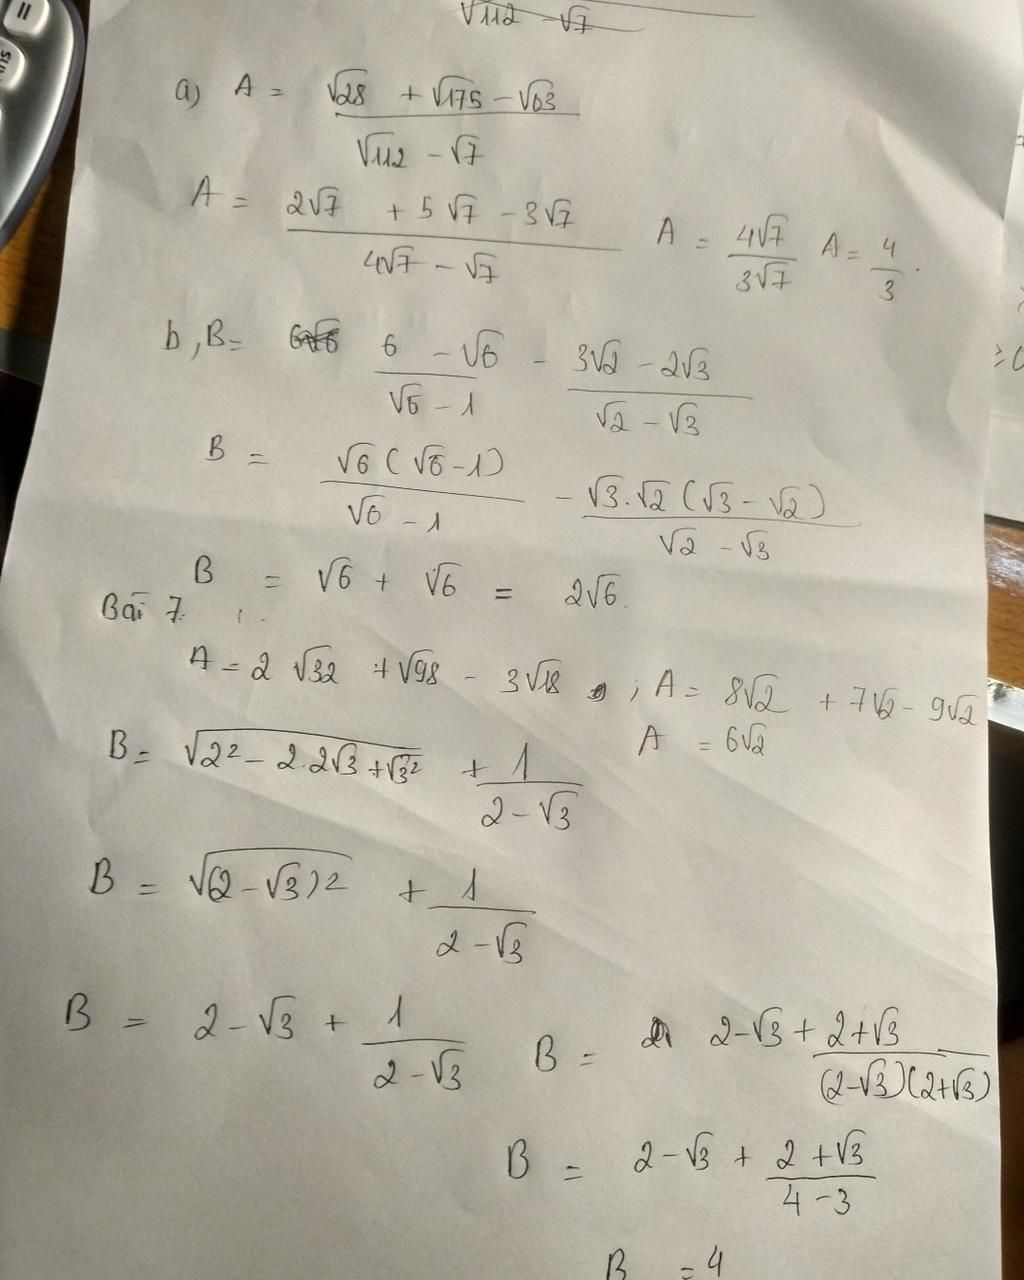 √112 - √7
a) A = (√28 + √175 - √63) / (√112 - √7)
A = (2√7 + 5√7 - 3√7) / (4√7 - √7)   A = 4√7 / 3√7   A = 4/3 .
b, B = (6 - √6) / (√6 - 1) - (3√2 - 2√3) / (√2 - √3)
B = √6(√6 - 1) / (√6 - 1) - √3.√2(√3 - √2) / (√2 - √3)
B = √6 + √6 = 2√6.
Bài 7.
A = 2√32 + √98 - 3√18 ; A = 8√2 + 7√2 - 9√2
A = 6√2
B = √(2² - 2.2√3 + √3²) + 1 / (2 - √3)
B = √((2 - √3)²) + 1 / (2 - √3)
B = 2 - √3 + 1 / (2 - √3)   B = 2 - √3 + (2 + √3) / ((2 - √3)(2 + √3))
B = 2 - √3 + (2 + √3) / (4 - 3)
B = 4